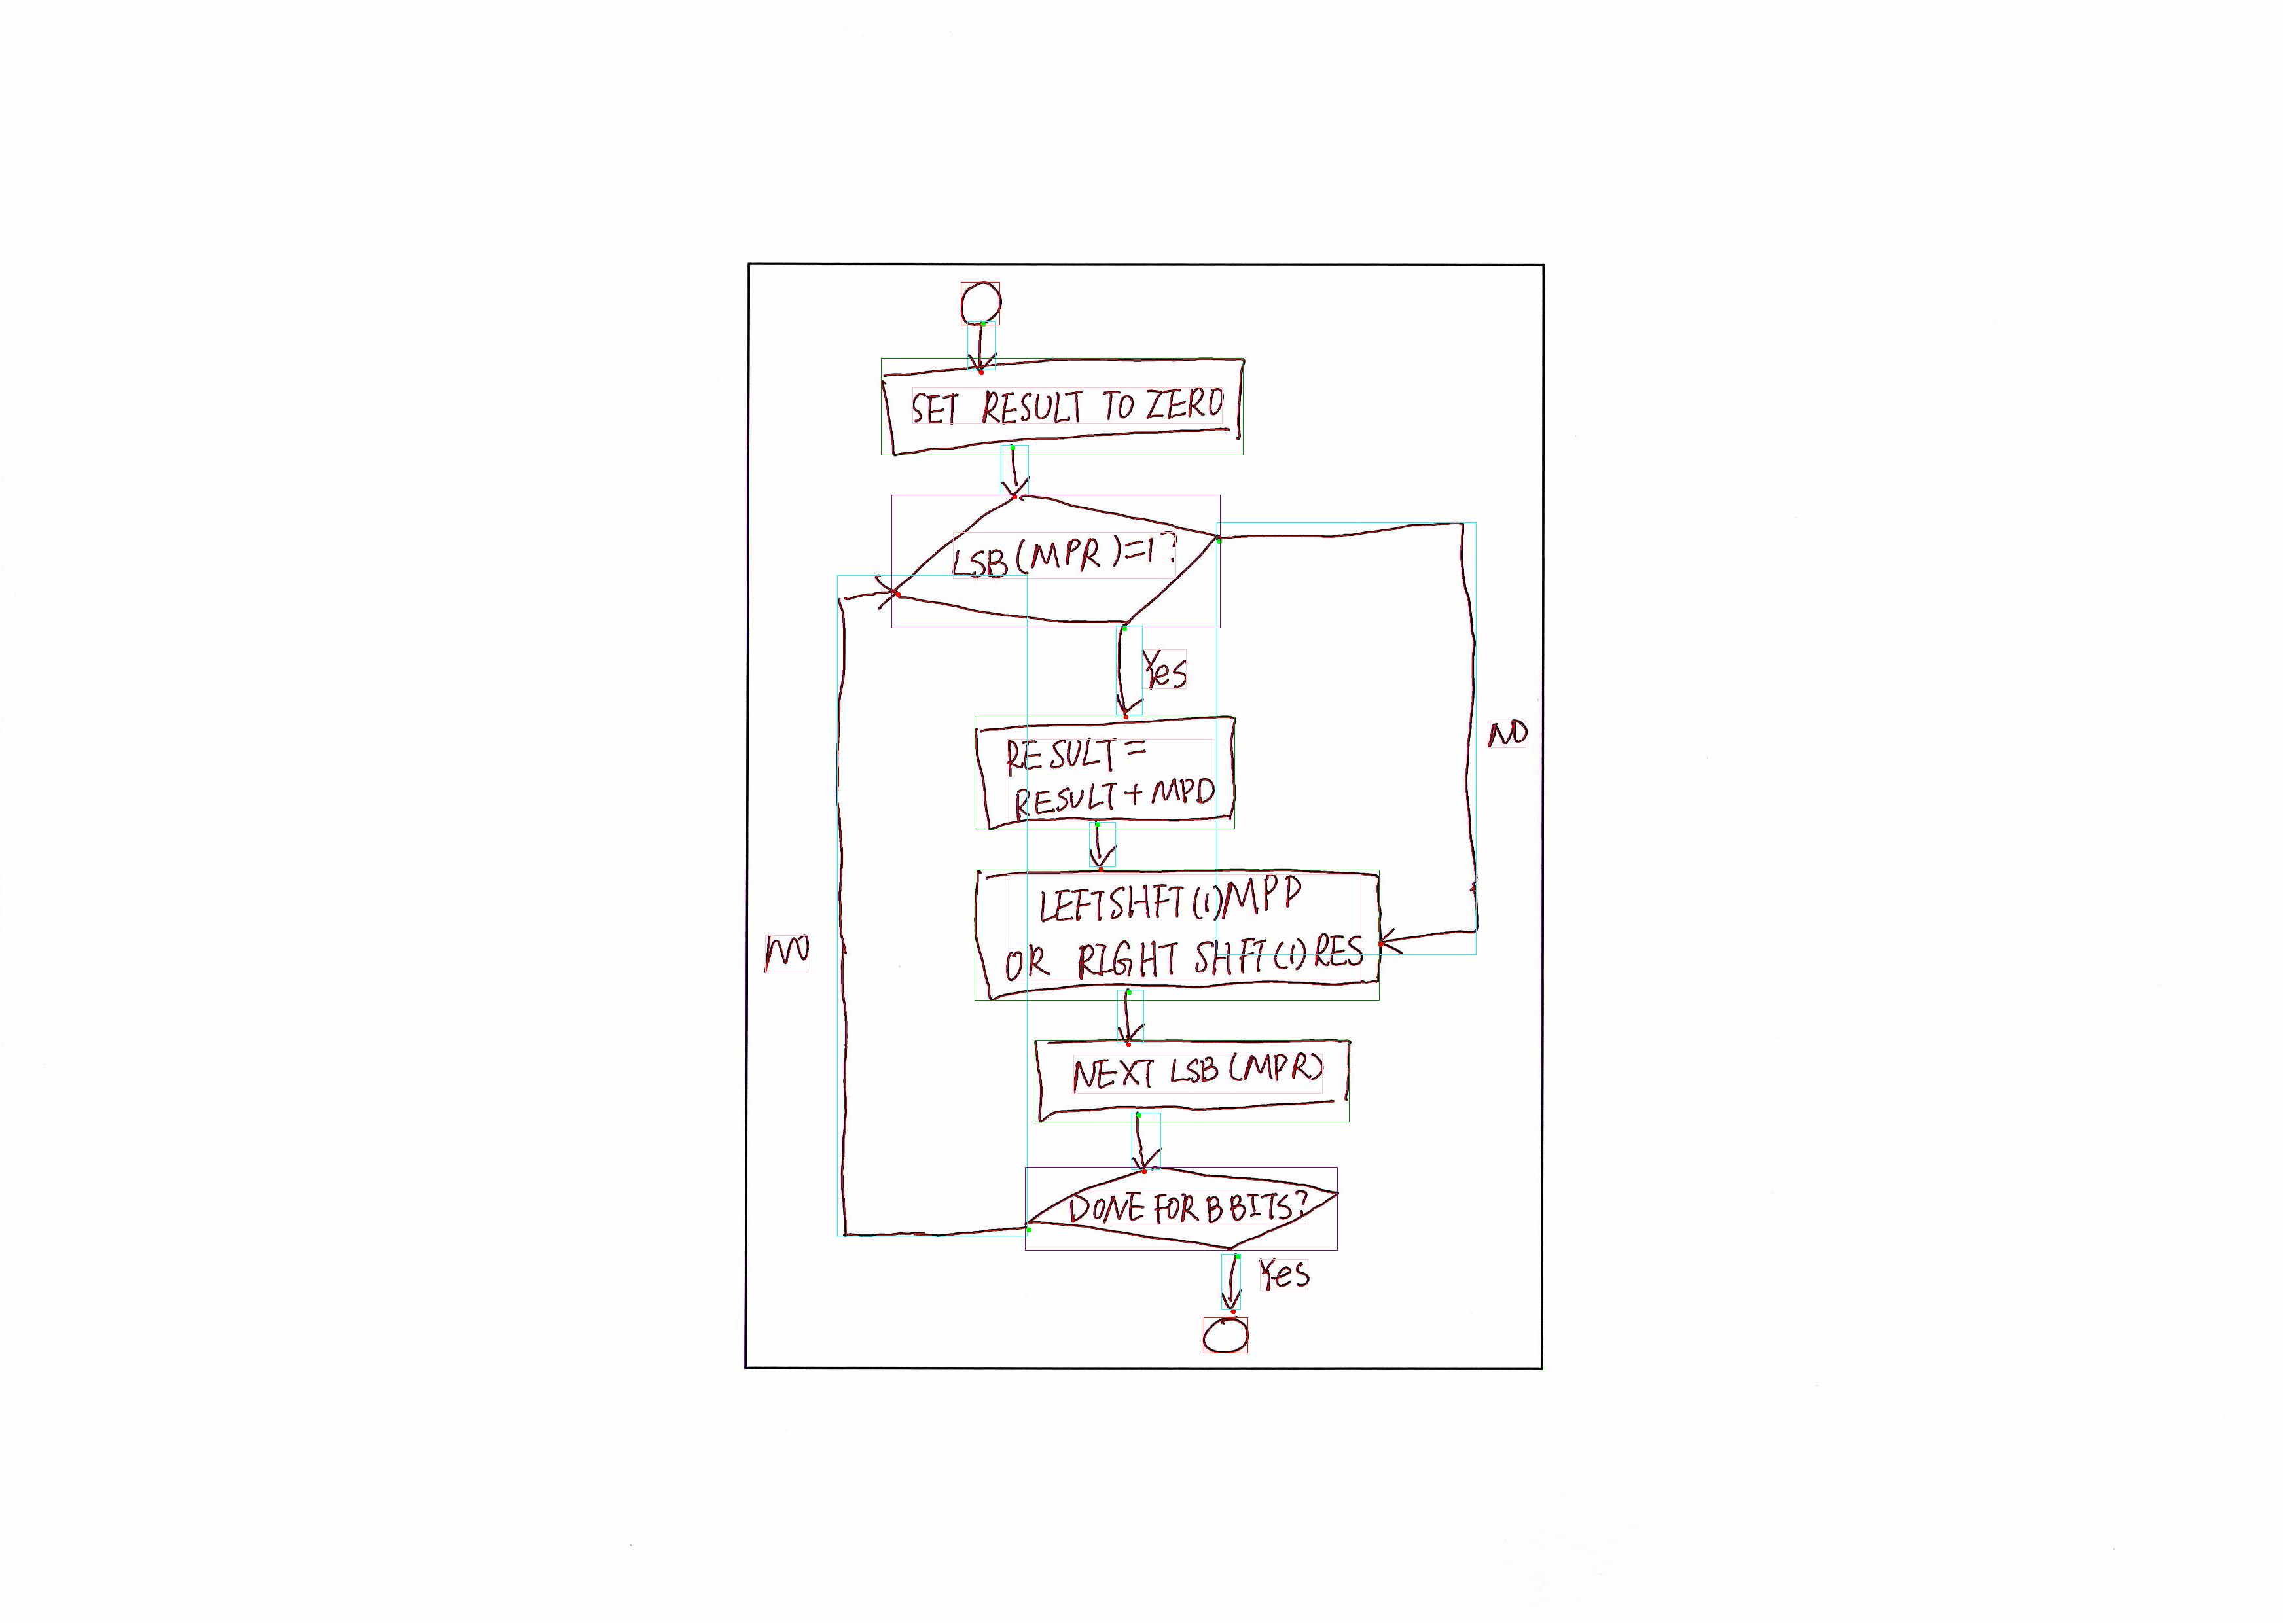 SET RESULT TO ZERO
LSB(MPR)=1?
Yes
NO
RESULT=
RESULT+MPD
LEFTSHFT(1)MPD
OR RIGHT SHFT(1)RES
NO
NEXT LSB(MPR)
DONE FOR B BITS?
Yes